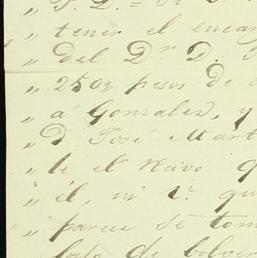 „ tener el encar
„ del Dr. D.
„ 250 pesos de
„ a Gonzalez, y
„ D José Mart
„ te el Navo q
„ él, mi V. qu
„ parece se tom
„ de bolver